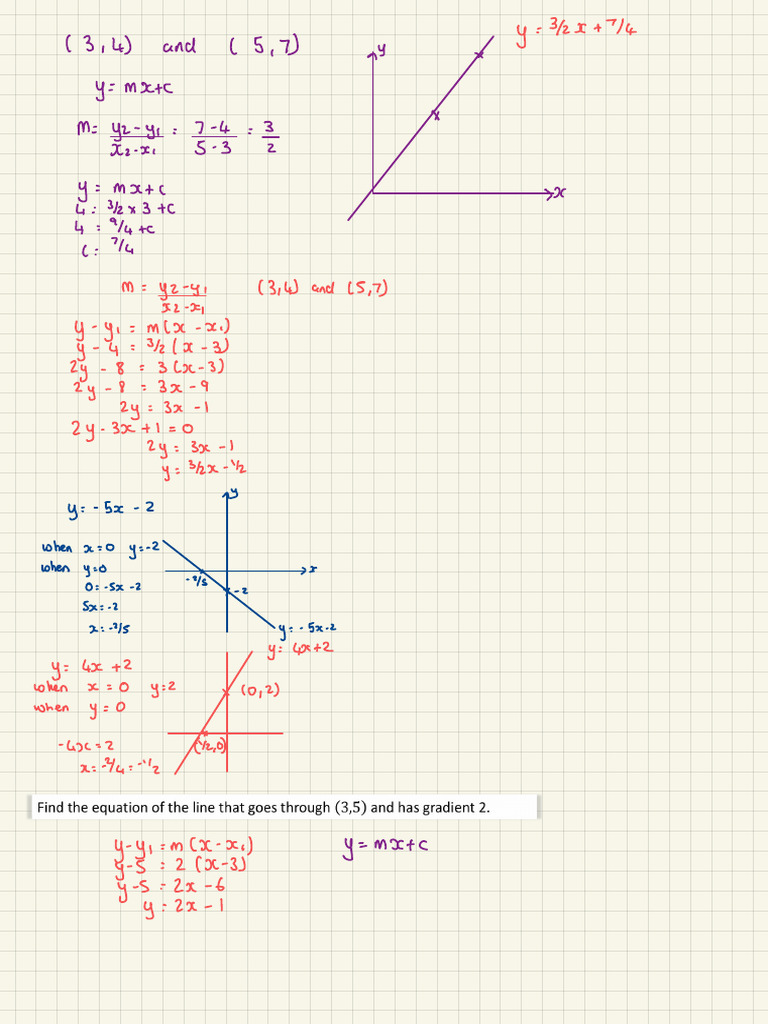 (3,4) and (5,7)
y = 3/2 x + 7/4
y
y = mx+c
m = y2-y1 / x2-x1 = 7-4 / 5-3 = 3/2
x
y = mx+c
4 = 3/2 x 3 + c
4 = 9/4 + c
c = 7/4
m = y2-y1 / x2-x1 (3,4) and (5,7)
y - y1 = m(x - x1)
y - 4 = 3/2 (x - 3)
2y - 8 = 3(x-3)
2y - 8 = 3x - 9
2y = 3x - 1
2y - 3x + 1 = 0
2y = 3x - 1
y = 3/2x - 1/2
y
y = - 5x - 2
when x=0 y=-2
when y=0
x
0=-5x-2
-2/5
-2
5x=-2
x=-2/5
y=-5x-2
y= 4x+2
y= 4x+2
when x = 0 y=2
(0,2)
when y = 0
-4x=2
(1/2,0)
x=-2/4=-1/2
Find the equation of the line that goes through (3,5) and has gradient 2.
y-y1 = m(x-x1)
y = mx+c
y-5 = 2 (x-3)
y-5 = 2x - 6
y = 2x - 1